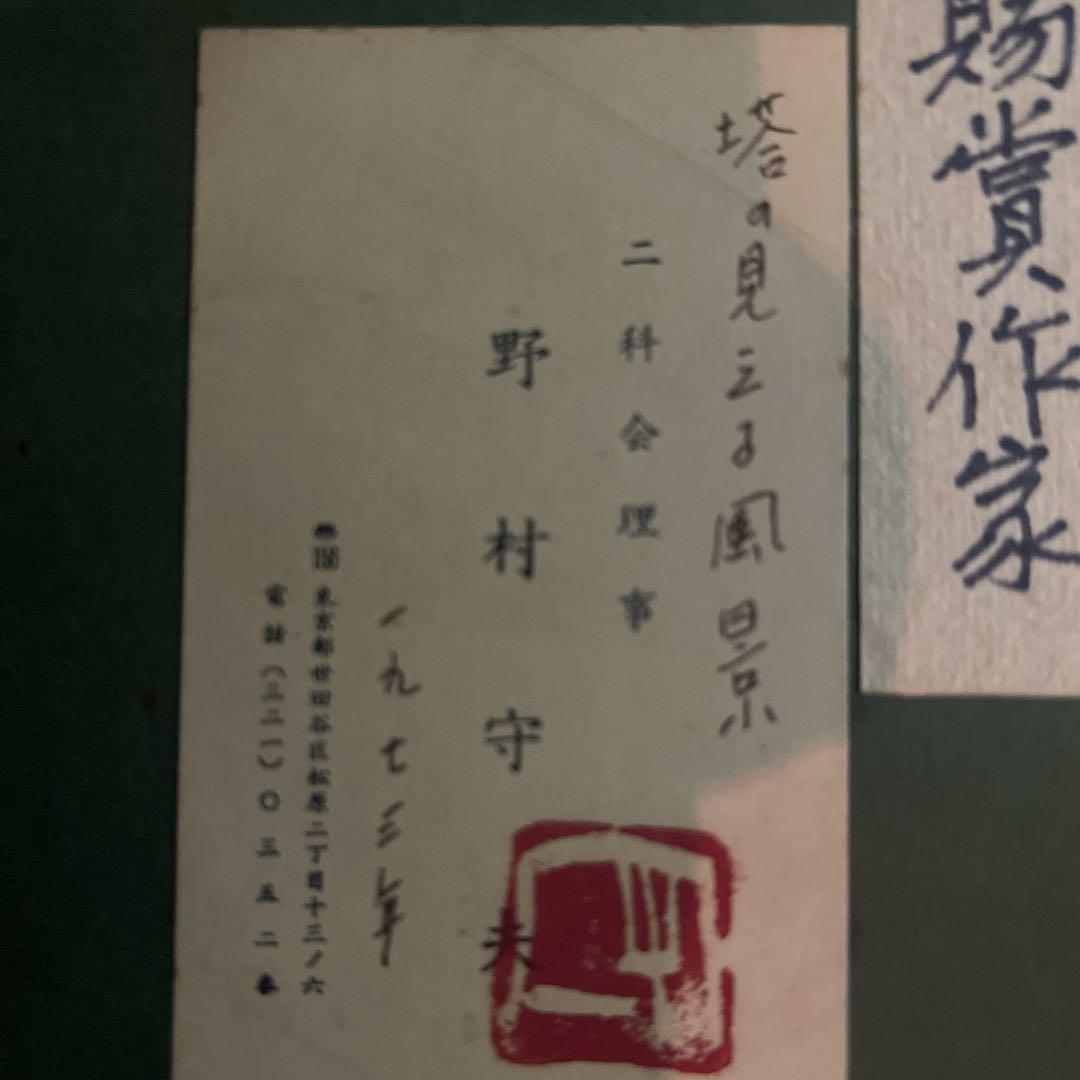 賜賞作家
塔の見える風景
二科会理事
野村守夫
一九七三年
〒156 東京都世田谷区松原二丁目十三ノ六
電話(三二一)〇三五二番